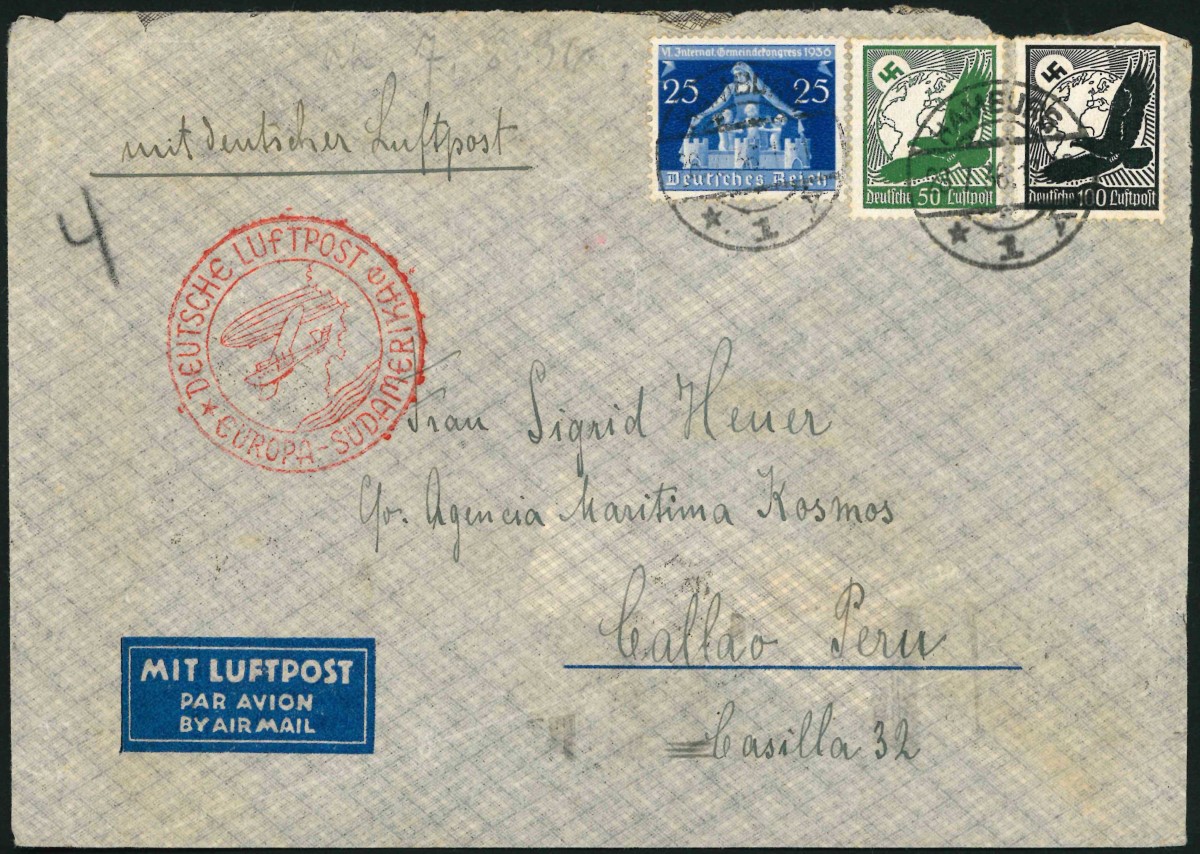 VI. Internat. Gemeindekongress 1936
25 25
Deutsches Reich
Deutsche 50 Luftpost
Deutsche 100 Luftpost
HAMBURG
* 1
* 1
mit deutscher Luftpost
4
DEUTSCHE LUFTPOST
* EUROPA-SÜDAMERIKA
Frau Sigrid Heuer
c/o. Agencia Maritima Kosmos
Callao Peru
Casilla 32
MIT LUFTPOST
PAR AVION
BY AIR MAIL